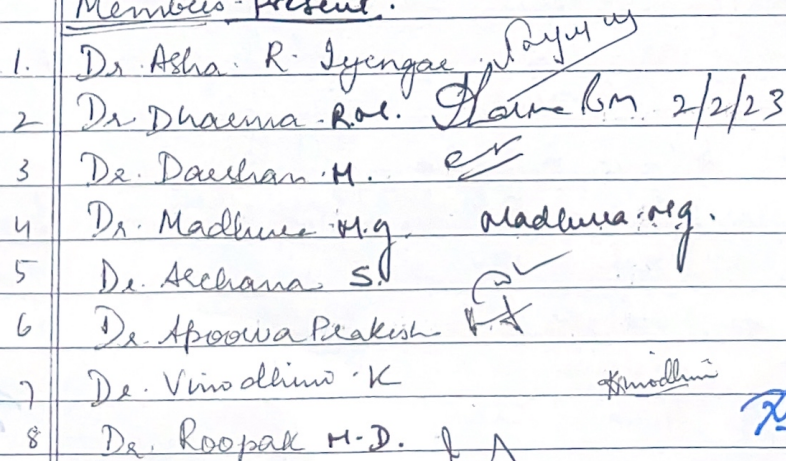 Members present.
1. Dr. Asha. R. Iyengar
2 Dr. Dharma R.M. 2/2/23
3 Dr. Darshan. M.
4 Dr. Madhura M.g. Madhura.Mg.
5 Dr. Archana S.
6 Dr. Apoorva Prakash
7 Dr. Vinodhini. K
8 Dr. Roopak M.D.